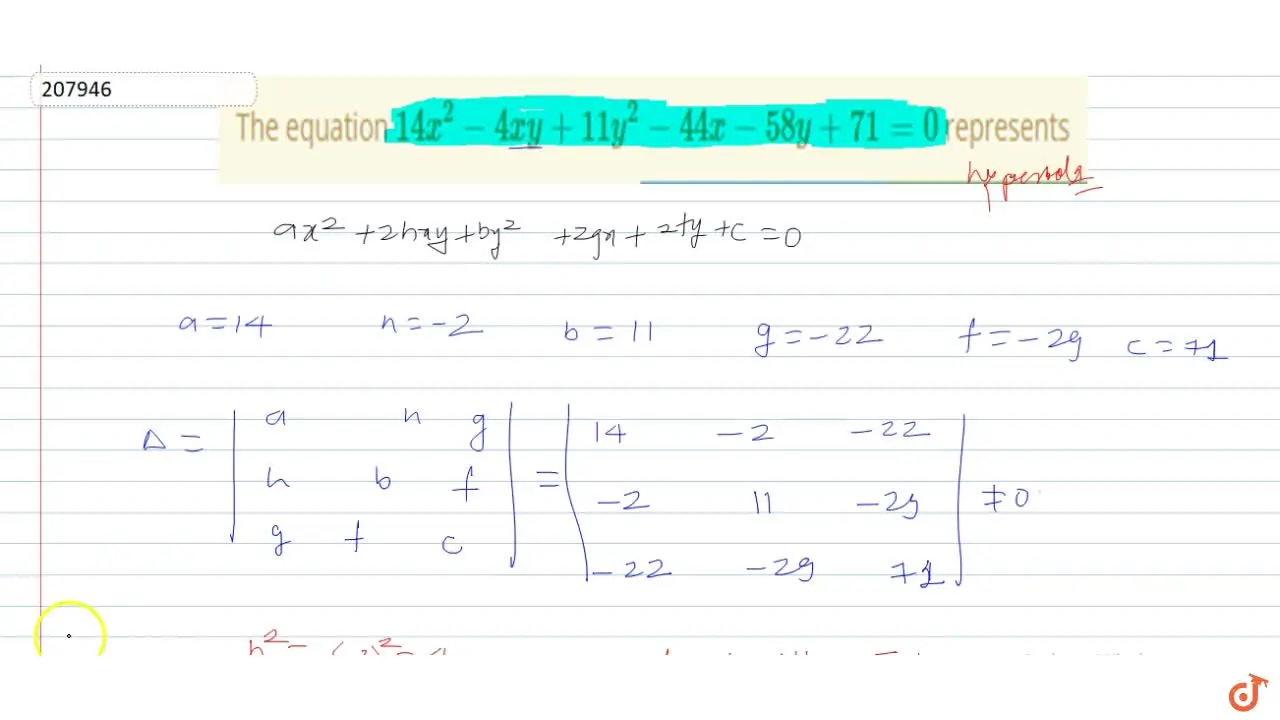 207946
The equation 14x² − 4xy + 11y² − 44x − 58y + 71 = 0 represents
hyperbola
ax² + 2hxy + by² + 2gx + 2fy + c = 0
a = 14 h = −2 b = 11 g = −22 f = −29 c = 71
Δ = | a h g | = | 14 −2 −22 | ≠ 0
| h b f | | −2 11 −29 |
| g f c | | −22 −29 71 |